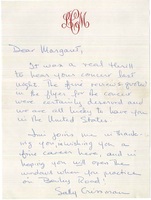 Dear Margaret,
It was a real thrill
to hear your concert last
night. The fine reviews posted
in the flyer for the concert
were certainly deserved and
we are all lucky to have you
in the United States.
Jim joins me in thank-
ing you, wishing you a
fine career here, and in
hoping you will open the
windows when you practice
on Sunday
Sally